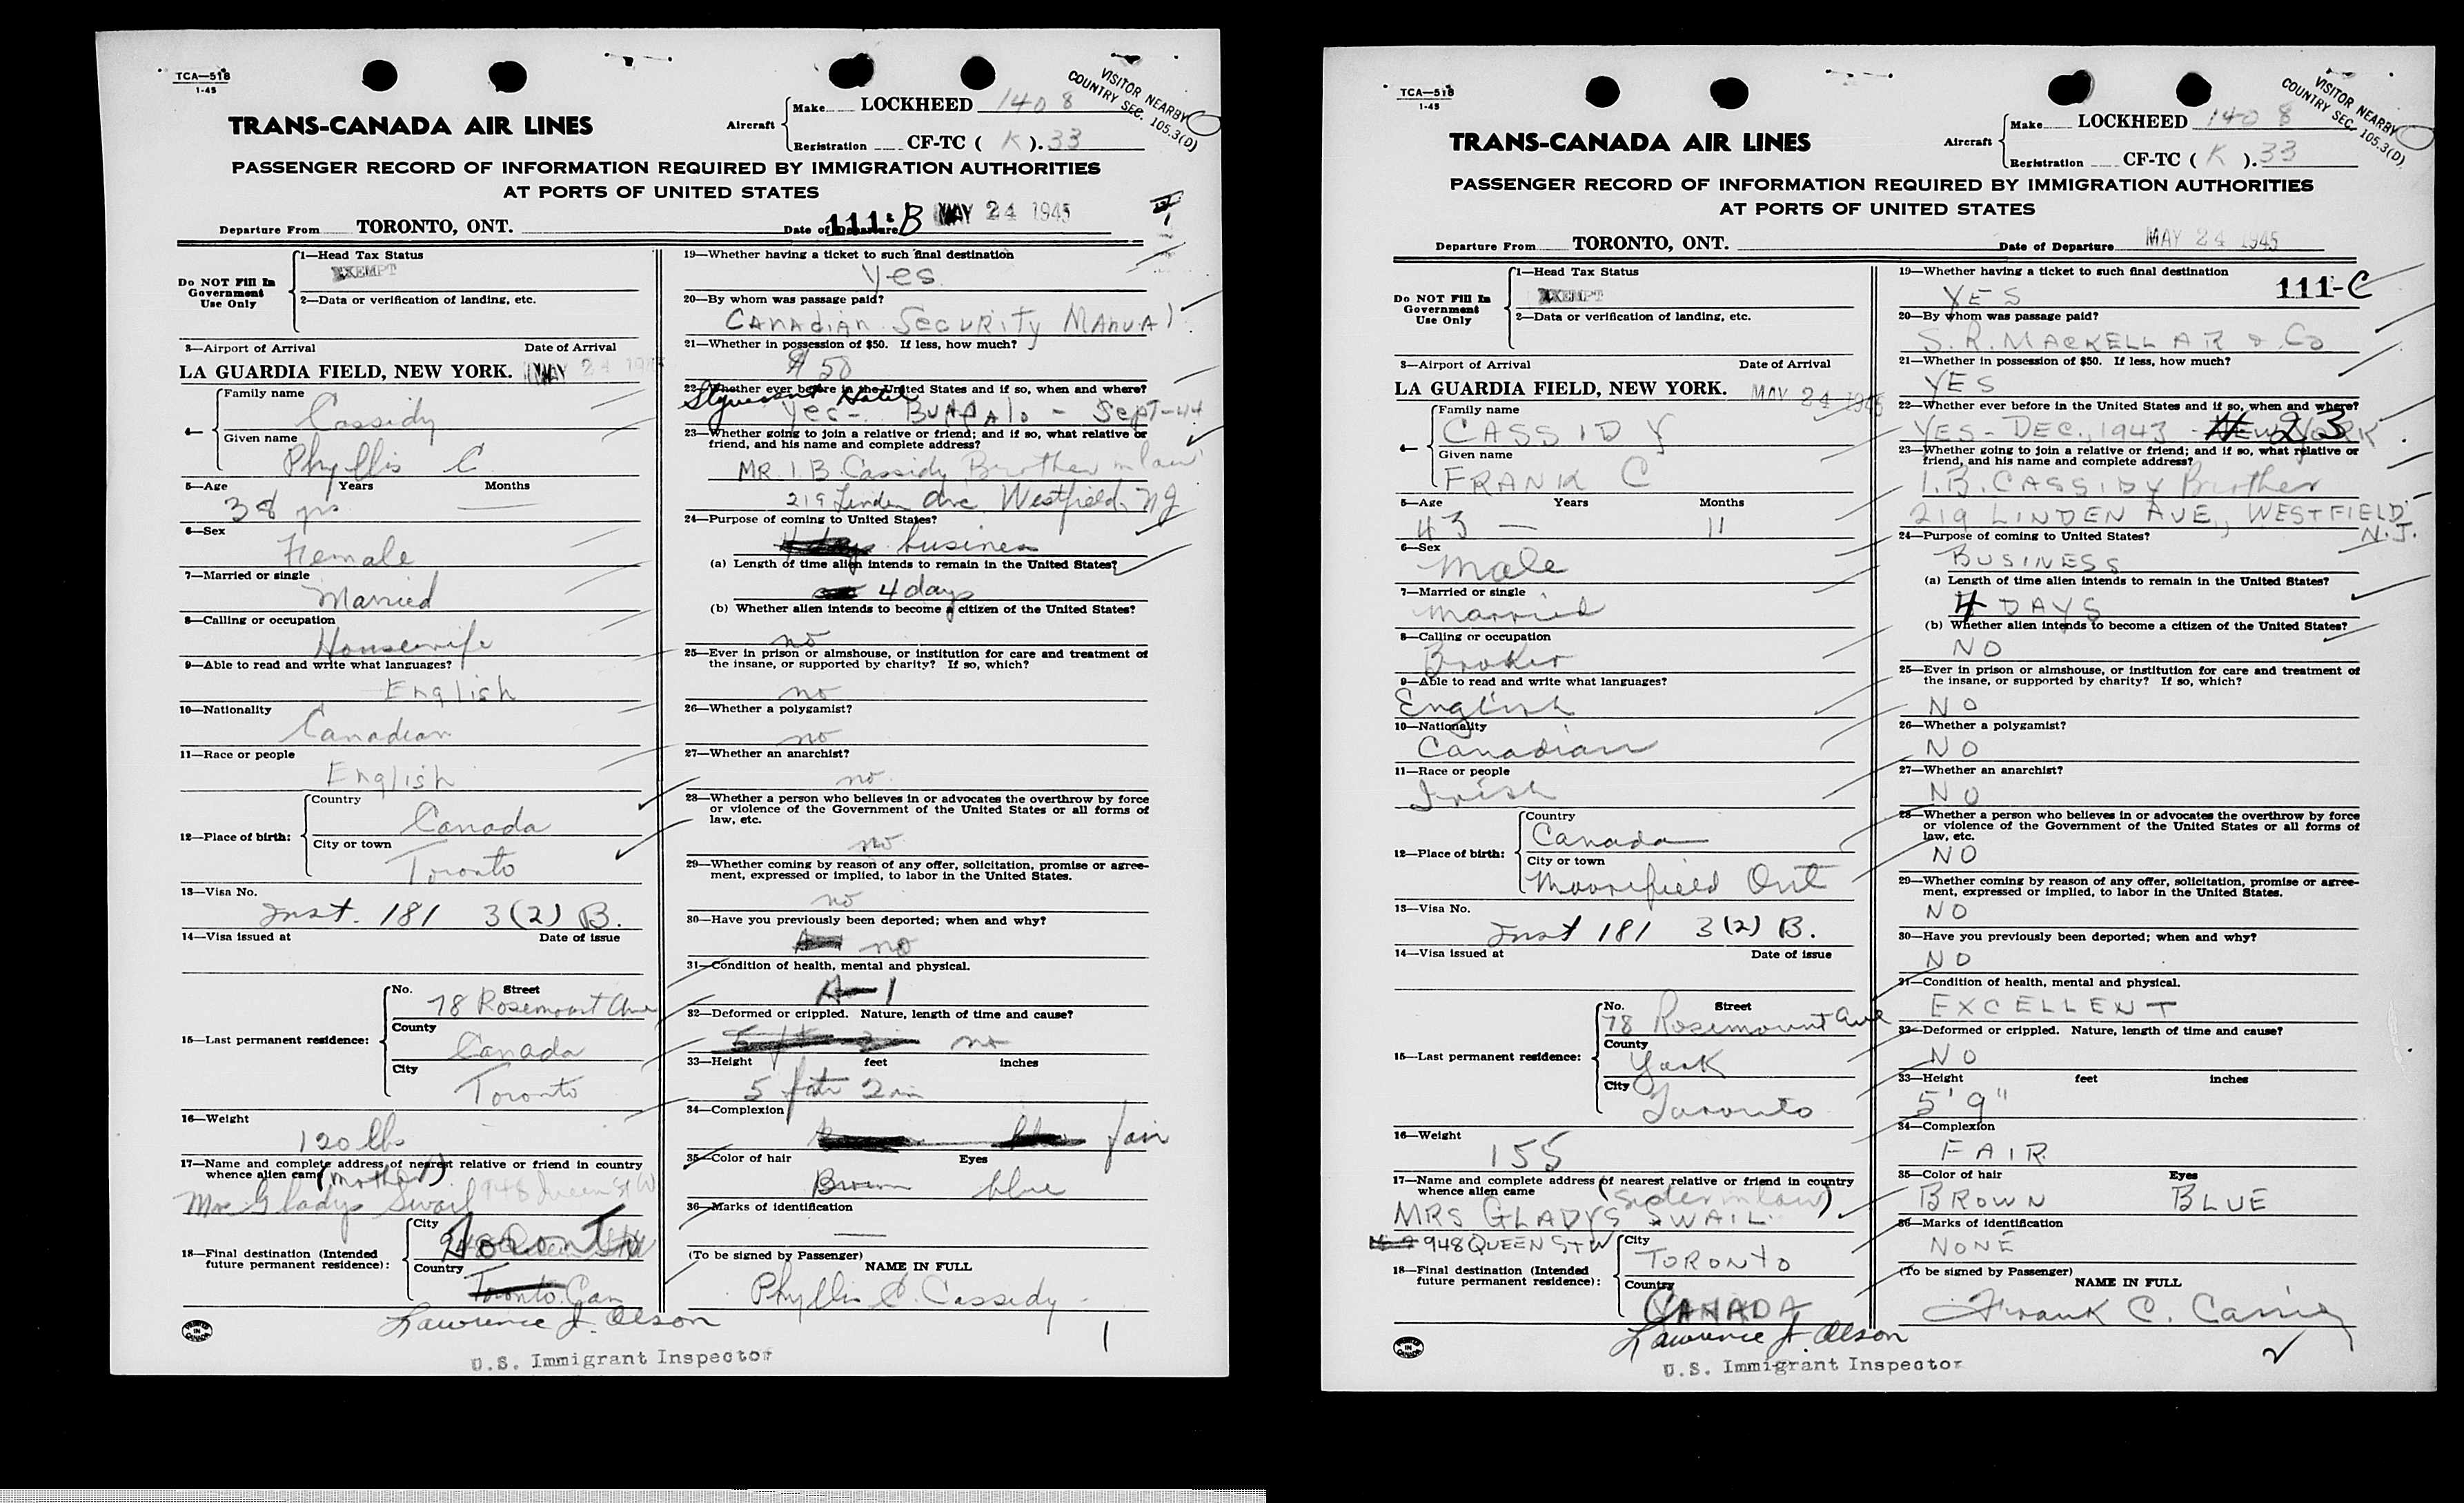 TCA—518
1-45
VISITOR NEARBY
COUNTRY SEC. 105.3(D)
TRANS-CANADA AIR LINES
Aircraft
Make LOCKHEED 1408
Registration CF-TC ( K ). 33
PASSENGER RECORD OF INFORMATION REQUIRED BY IMMIGRATION AUTHORITIES
AT PORTS OF UNITED STATES
Departure From TORONTO, ONT. Date of Departure 111-B MAY 24 1945
Do NOT Fill In
Government
Use Only
1—Head Tax Status
EXEMPT
2—Data or verification of landing, etc.
3—Airport of Arrival Date of Arrival
LA GUARDIA FIELD, NEW YORK. MAY 24 1945
4—
Family name
Cassidy
Given name
Phyllis C
5—Age Years Months
38 yrs —
6—Sex
Female
7—Married or single
Married
8—Calling or occupation
Housewife
9—Able to read and write what languages?
English
10—Nationality
Canadian
11—Race or people
English
12—Place of birth:
Country
Canada
City or town
Toronto
13—Visa No.
Inst. 181 3(2) B.
14—Visa issued at Date of issue
15—Last permanent residence:
No. Street
78 Rosemount Ave
County
Canada
City
Toronto
16—Weight
120 lbs
17—Name and complete address of nearest relative or friend in country
whence alien came (mother)
Mrs Gladys Swail 948 Queen St W
18—Final destination (Intended
future permanent residence):
City
Toronto
Country
Toronto Can
Lawrence J. Olson
U.S. Immigrant Inspector
PRINTED IN CANADA
19—Whether having a ticket to such final destination
yes
20—By whom was passage paid?
Canadian Security Manual
21—Whether in possession of $50. If less, how much?
$50
22—Whether ever before in the United States and if so, when and where?
Hotel
Yes - Buffalo - Sept-44
23—Whether going to join a relative or friend; and if so, what relative or
friend, and his name and complete address?
MR. I. B. Cassidy Brother in law
219 Linden Ave. Westfield, NJ
24—Purpose of coming to United States?
business
(a) Length of time alien intends to remain in the United States?
4 days
(b) Whether alien intends to become a citizen of the United States?
no
25—Ever in prison or almshouse, or institution for care and treatment of
the insane, or supported by charity? If so, which?
no
26—Whether a polygamist?
no
27—Whether an anarchist?
no
28—Whether a person who believes in or advocates the overthrow by force
or violence of the Government of the United States or all forms of
law, etc.
no
29—Whether coming by reason of any offer, solicitation, promise or agree-
ment, expressed or implied, to labor in the United States.
no
30—Have you previously been deported; when and why?
no
31—Condition of health, mental and physical.
A-1
32—Deformed or crippled. Nature, length of time and cause?
no
33—Height feet inches
5 ft 2 in
34—Complexion
fair
35—Color of hair Eyes
Brown blue
36—Marks of identification
—
(To be signed by Passenger)
NAME IN FULL
Phyllis C. Cassidy
1
TCA—518
1-45
VISITOR NEARBY
COUNTRY SEC. 105.3(D)
TRANS-CANADA AIR LINES
Aircraft
Make LOCKHEED 1408
Registration CF-TC ( K ). 33
PASSENGER RECORD OF INFORMATION REQUIRED BY IMMIGRATION AUTHORITIES
AT PORTS OF UNITED STATES
Departure From TORONTO, ONT. Date of Departure MAY 24 1945
Do NOT Fill In
Government
Use Only
1—Head Tax Status
EXEMPT
2—Data or verification of landing, etc.
3—Airport of Arrival Date of Arrival
LA GUARDIA FIELD, NEW YORK. MAY 24 1945
4—
Family name
CASSIDY
Given name
FRANK C
5—Age Years Months
43 — 11
6—Sex
Male
7—Married or single
Married
8—Calling or occupation
Broker
9—Able to read and write what languages?
English
10—Nationality
Canadian
11—Race or people
Irish
12—Place of birth:
Country
Canada
City or town
Moorefield Ont
13—Visa No.
Inst 181 3(2) B.
14—Visa issued at Date of issue
15—Last permanent residence:
No. Street
78 Rosemount Ave
County
York
City
Toronto
16—Weight
155
17—Name and complete address of nearest relative or friend in country
whence alien came (Sister in law)
MRS GLADYS SWAIL
948 QUEEN ST W
18—Final destination (Intended
future permanent residence):
City
TORONTO
Country
CANADA
Lawrence J. Olson
U.S. Immigrant Inspector
PRINTED IN CANADA
19—Whether having a ticket to such final destination
YES 111-C
20—By whom was passage paid?
S. R. MACKELLAR & Co
21—Whether in possession of $50. If less, how much?
YES
22—Whether ever before in the United States and if so, when and where?
YES - DEC., 1943 - NEW YORK 23
23—Whether going to join a relative or friend; and if so, what relative or
friend, and his name and complete address?
I. B. CASSIDY Brother
219 LINDEN AVE., WESTFIELD
N.J.
24—Purpose of coming to United States?
BUSINESS
(a) Length of time alien intends to remain in the United States?
4 DAYS
(b) Whether alien intends to become a citizen of the United States?
NO
25—Ever in prison or almshouse, or institution for care and treatment of
the insane, or supported by charity? If so, which?
NO
26—Whether a polygamist?
NO
27—Whether an anarchist?
NO
28—Whether a person who believes in or advocates the overthrow by force
or violence of the Government of the United States or all forms of
law, etc.
NO
29—Whether coming by reason of any offer, solicitation, promise or agree-
ment, expressed or implied, to labor in the United States.
NO
30—Have you previously been deported; when and why?
NO
31—Condition of health, mental and physical.
EXCELLENT
32—Deformed or crippled. Nature, length of time and cause?
NO
33—Height feet inches
5' 9"
34—Complexion
FAIR
35—Color of hair Eyes
BROWN BLUE
36—Marks of identification
NONE
(To be signed by Passenger)
NAME IN FULL
Frank C. Cassidy